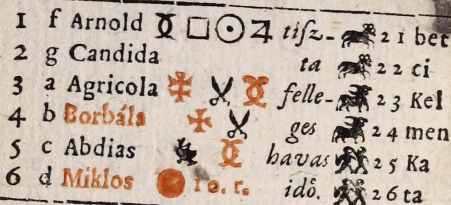 1 f Arnold □ ☉ ♃ tiſz- 21 bet
2 g Candida ta 22 ci
3 a Agricola felle- 23 Kel
4 b Borbála ges 24 men
5 c Abdias havas 25 Ka
6 d Miklos 10. r. idő. 26 ta